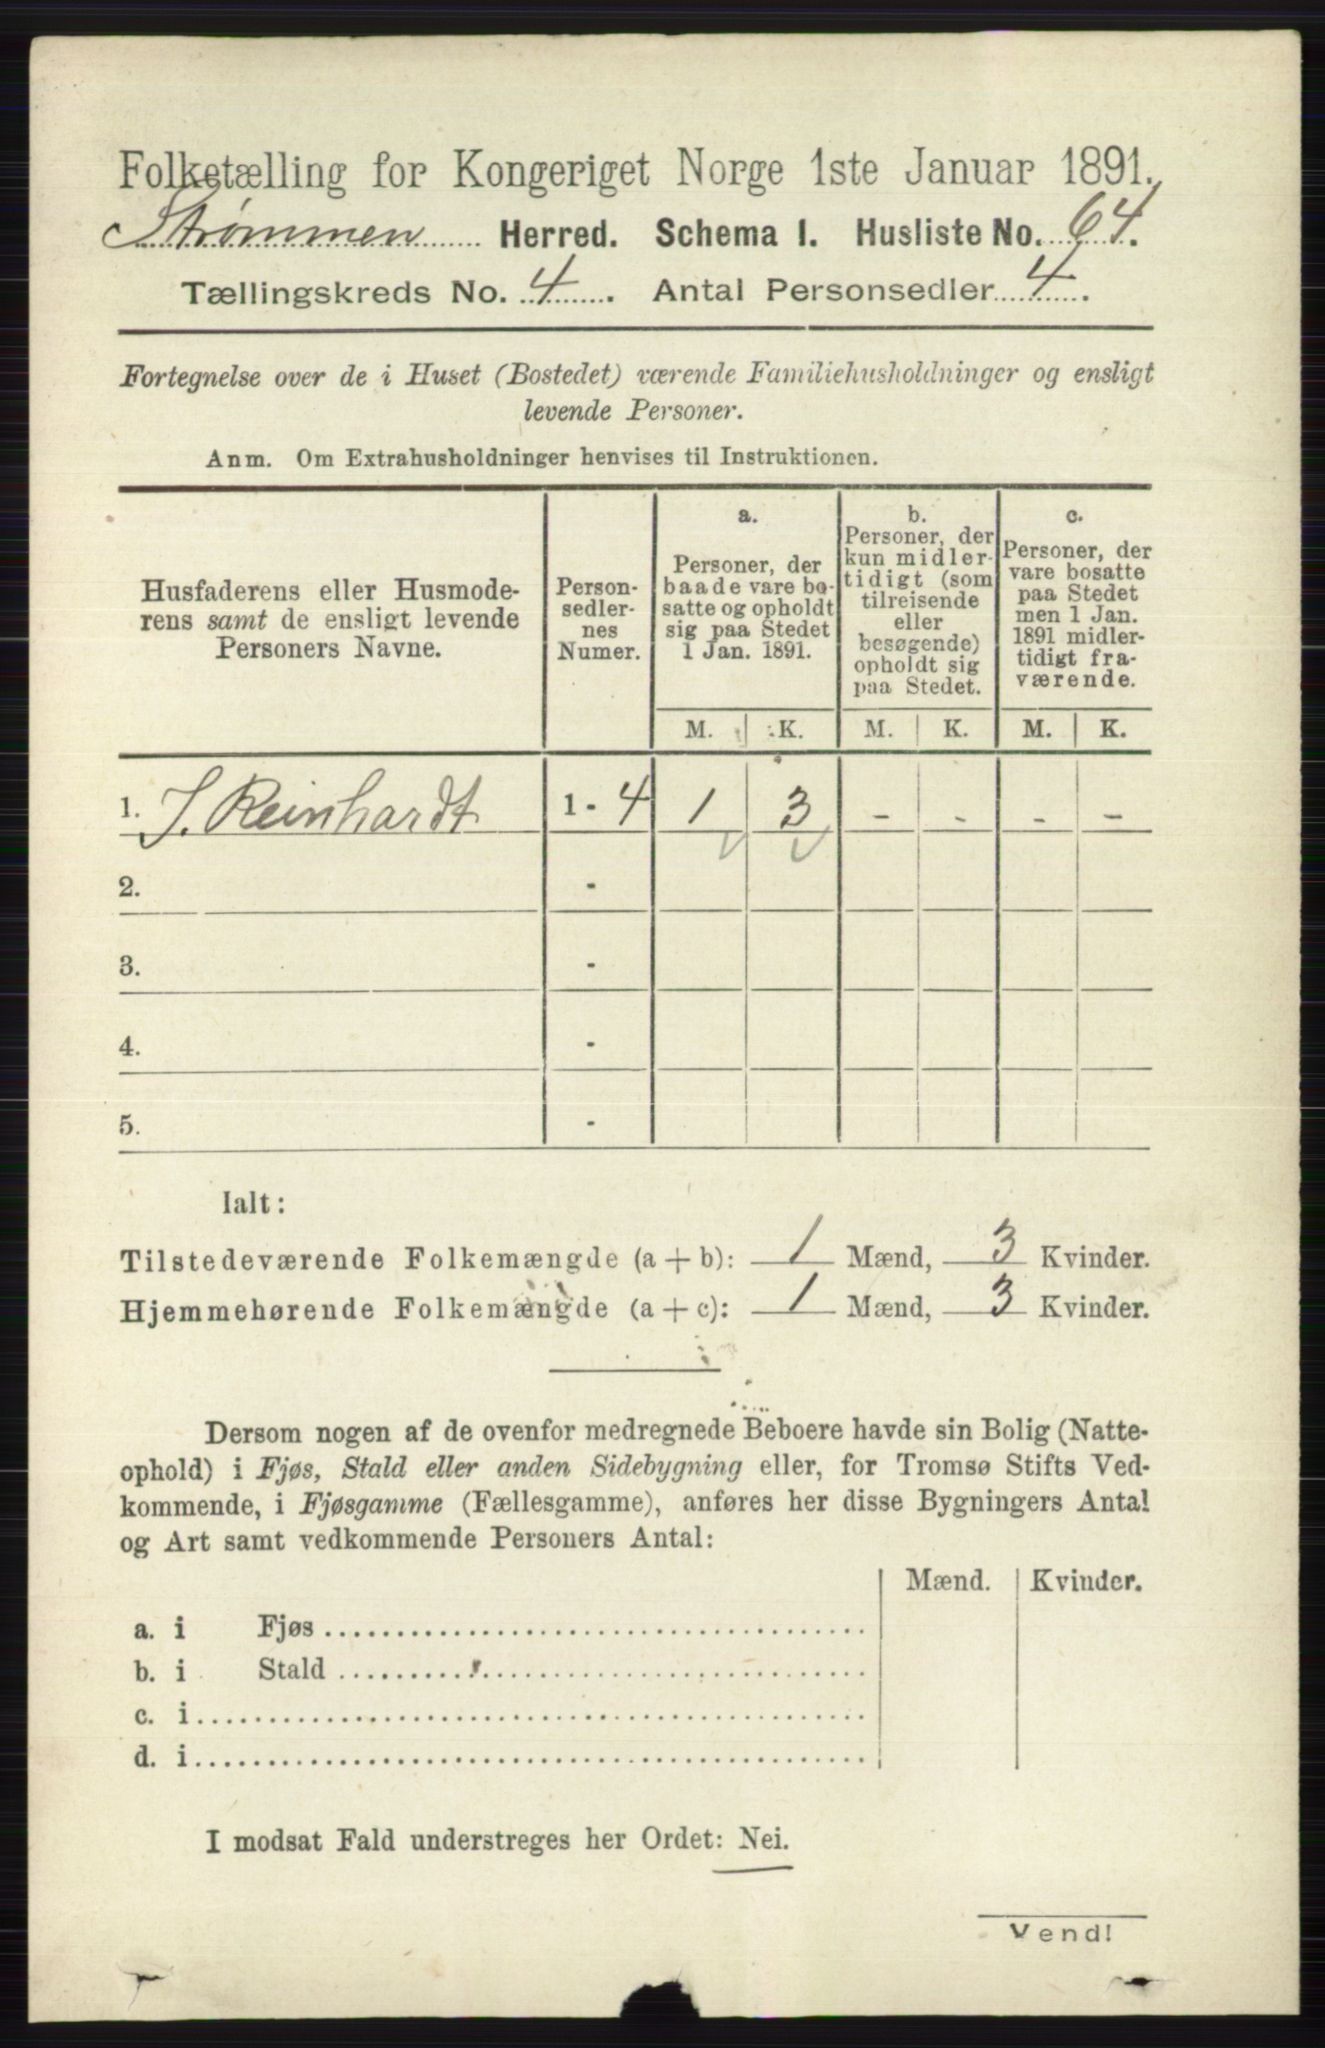 Folketælling for Kongeriget Norge 1ste Januar 1891.
Strømmen Herred. Schema I. Husliste No. 64.
Tællingskreds No. 4. Antal Personsedler 4.
Fortegnelse over de i Huset (Bostedet) værende Familiehusholdninger og ensligt
levende Personer.
Anm. Om Extrahusholdninger henvises til Instruktionen.
Husfaderens eller Husmode-
rens samt de ensligt levende
Personers Navne.
Person-
sedler-
nes
Numer.
a.
Personer, der
baade vare bo-
satte og opholdt
sig paa Stedet
1 Jan. 1891.
b.
Personer, der
kun midler-
tidigt (som
tilreisende
eller
besøgende)
opholdt sig
paa Stedet.
c.
Personer, der
vare bosatte
paa Stedet
men 1 Jan.
1891 midler-
tidigt fra-
værende.
M. K. M. K. M. K.
1. J. Reinhardt 1 - 4 1 3 - - - -
2. -
3. -
4. -
5. -
Ialt:
Tilstedeværende Folkemængde (a + b): 1 Mænd, 3 Kvinder.
Hjemmehørende Folkemængde (a + c): 1 Mænd, 3 Kvinder.
Dersom nogen af de ovenfor medregnede Beboere havde sin Bolig (Natte-
ophold) i Fjøs, Stald eller anden Sidebygning eller, for Tromsø Stifts Ved-
kommende, i Fjøsgamme (Fællesgamme), anføres her disse Bygningers Antal
og Art samt vedkommende Personers Antal:
Mænd. Kvinder.
a. i Fjøs
b. i Stald
c. i
d. i
I modsat Fald understreges her Ordet: Nei.
Vend!